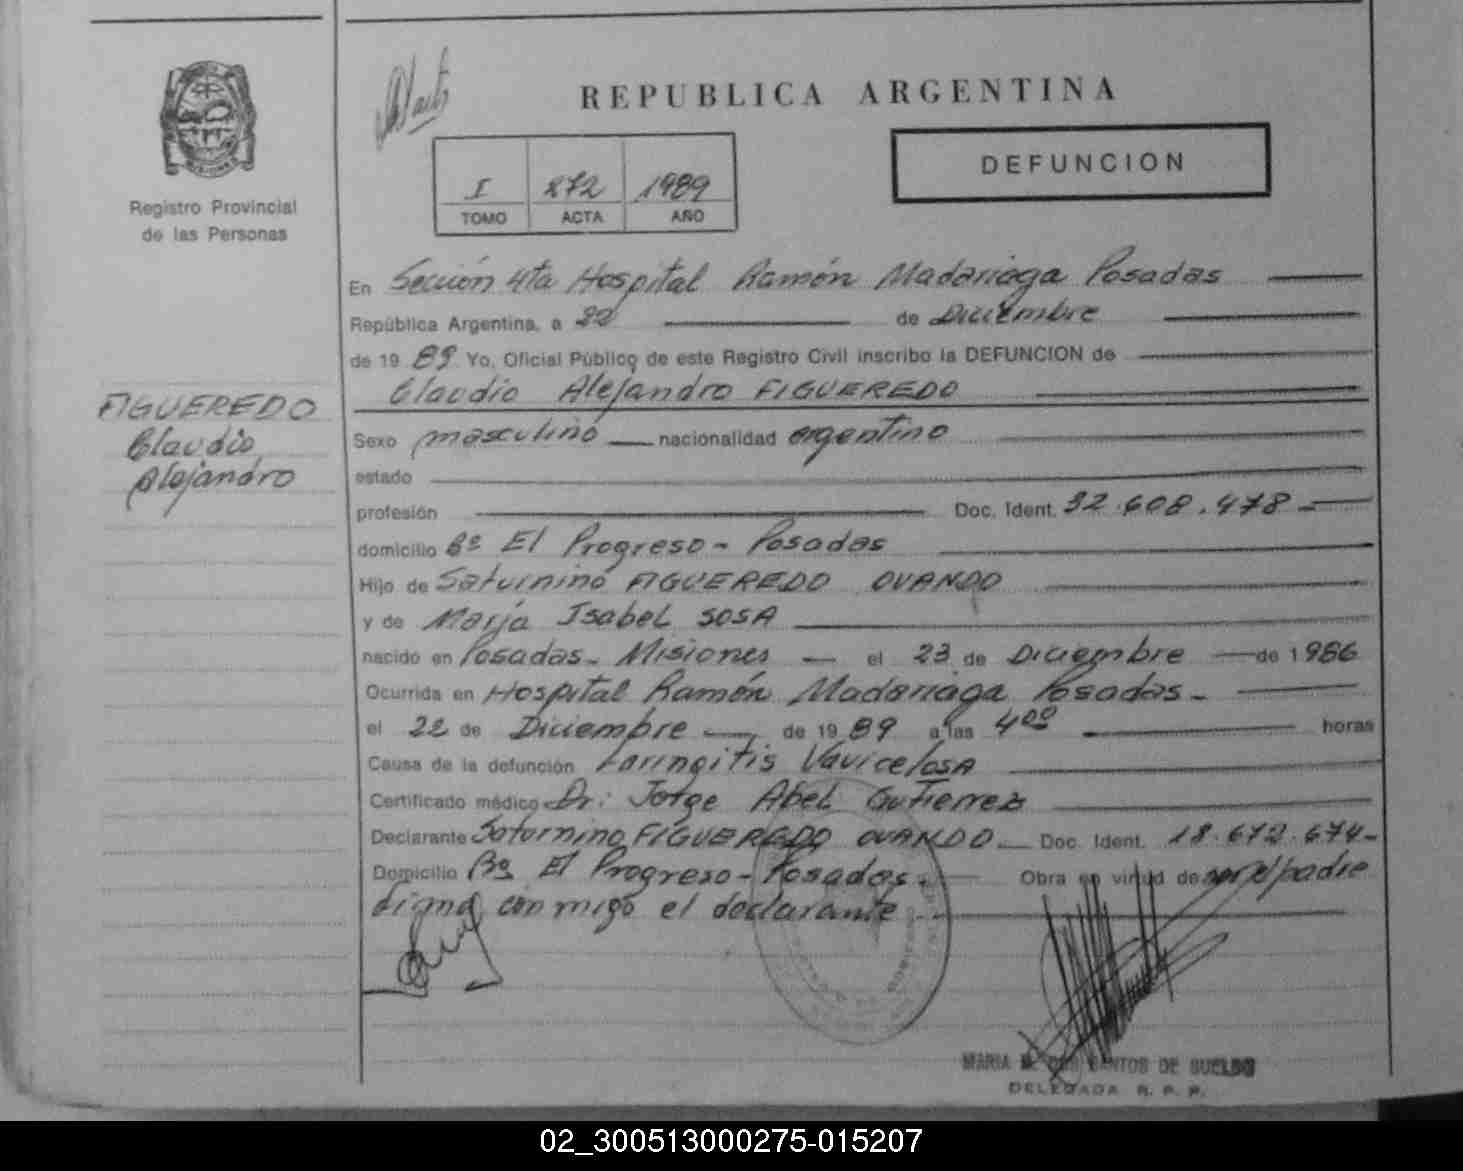 REPUBLICA ARGENTINA
DEFUNCION
I 272 1989
TOMO ACTA AÑO
Registro Provincial
de las Personas
En Sección 4ta Hospital Ramón Madariaga Posadas
República Argentina, a 22 de Diciembre
de 19 89 Yo, Oficial Público de este Registro Civil inscribo la DEFUNCION de
Claudio Alejandro FIGUEREDO
FIGUEREDO
Claudio
Alejandro
Sexo masculino nacionalidad argentino
estado
profesión Doc. Ident. 32.608.478
domicilio Bº El Progreso - Posadas
Hijo de Saturnino FIGUEREDO OVANDO
y de María Isabel SOSA
nacido en Posadas - Misiones el 23 de Diciembre de 1986
Ocurrida en Hospital Ramón Madariaga Posadas -
el 22 de Diciembre de 19 89 a las 4⁰⁰ horas
Causa de la defunción Laringitis
Certificado médico Dr: Jorge Abel Gutierrez
Declarante Saturnino FIGUEREDO OVANDO Doc. Ident. 18.672.674-
Domicilio Bº El Progreso - Posadas. Obra en virtud de ser el padre
firma conmigo el declarante
MARIA DOS SANTOS DE SUELDO
DELEGADA R. P. P.
02_300513000275-015207